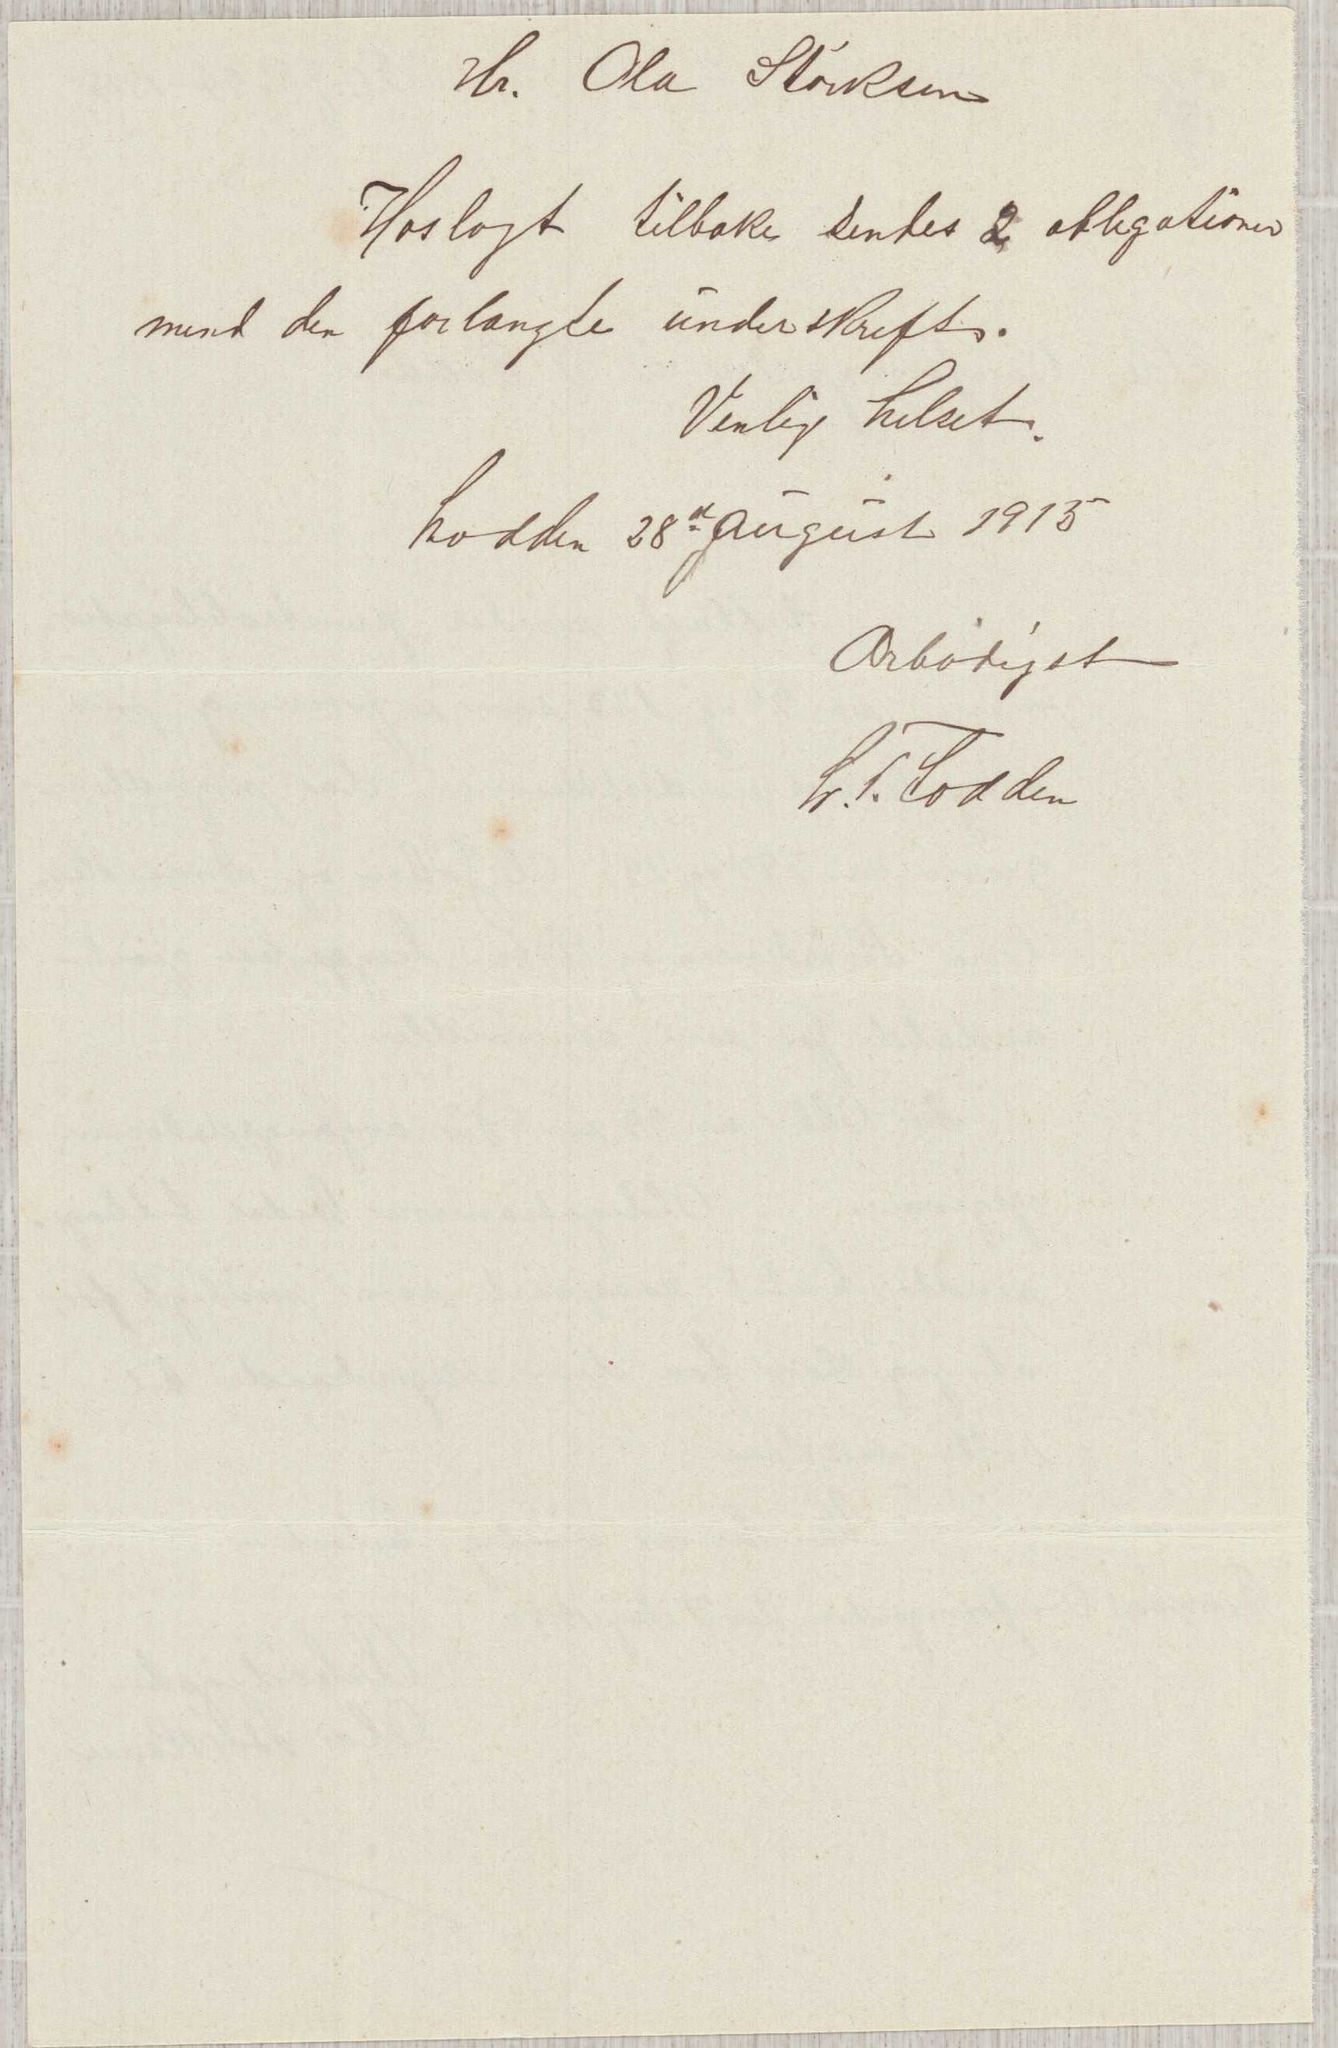 Hr. Ola Störksen
Hoslagt tilbake sendes 2 obligationer
mend den forlangte underskreft.
Venlig helset.
Lodden 28 august 1915
Ærbödigst
T. Lodden